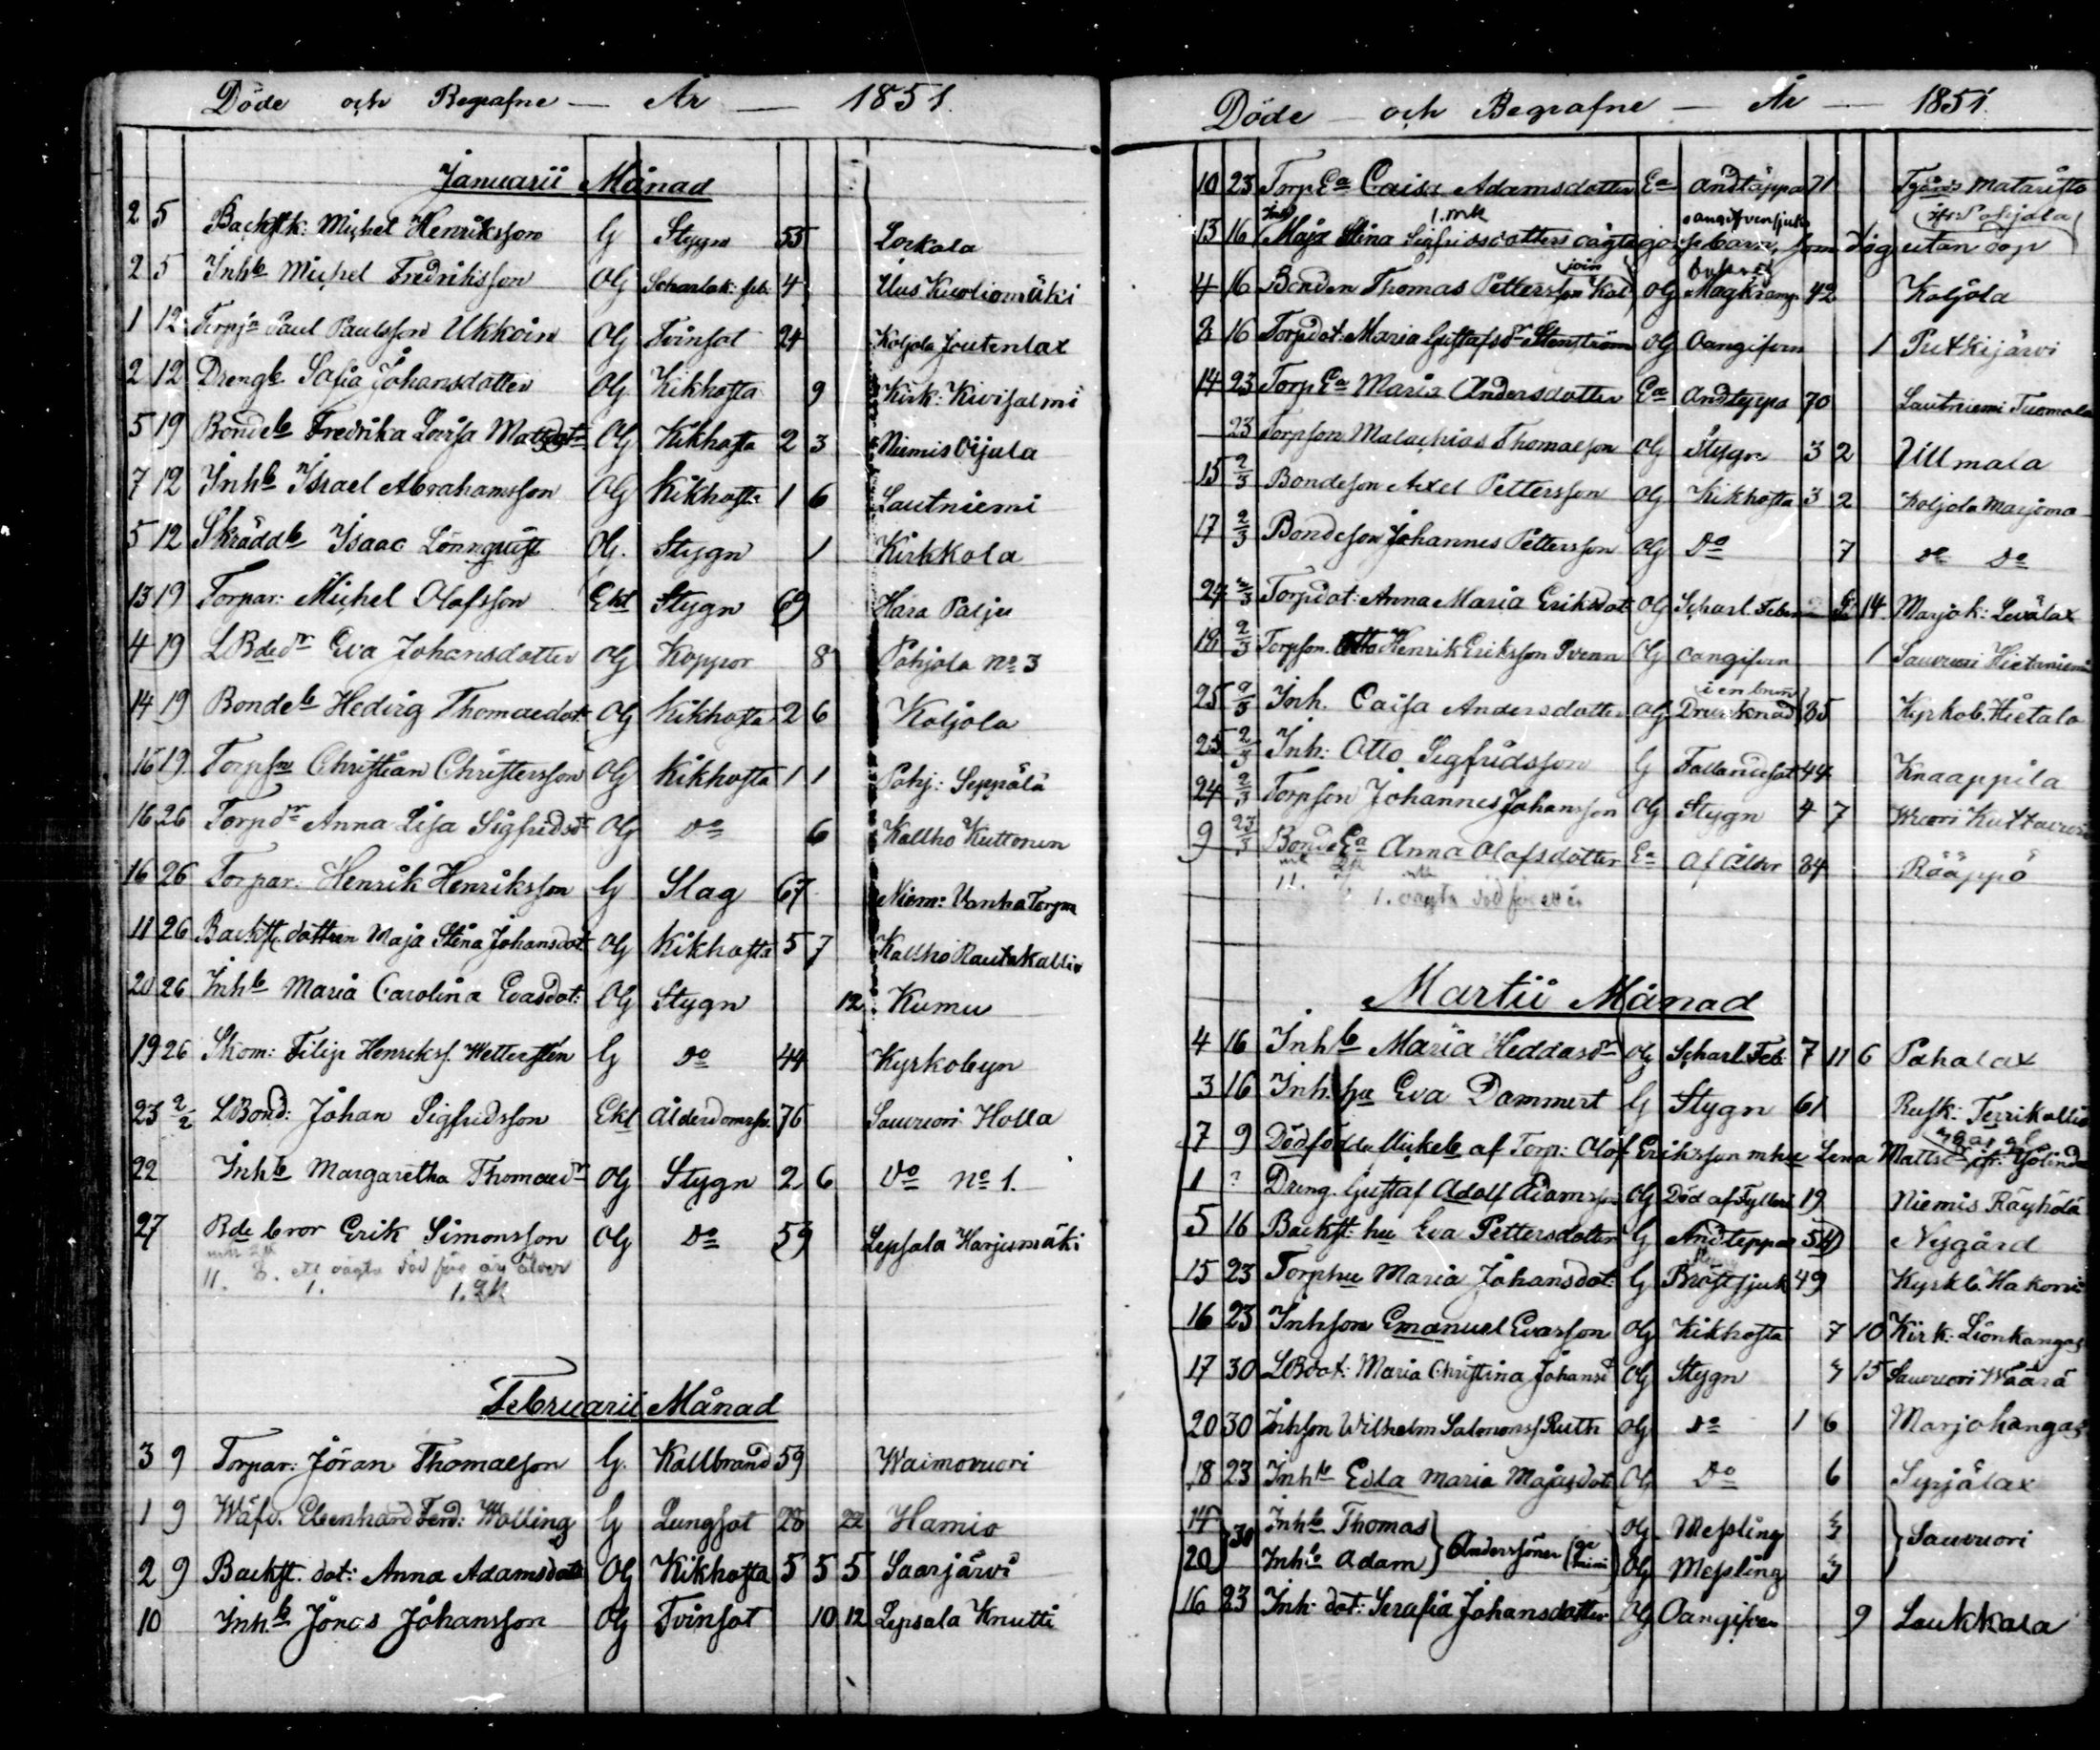 Döde och Begrafne — År — 1851.
Januarii Månad
2 5 Backstk: Michel Henriksson G Stygn 55 Lorkala
2 5 Inhb Michel Fredriksson OG Scharlak: feb. 4 Uus Kuoliomäki
1 12 Torpsn Paul Paulsson Ukkoin OG Tvinsot 24 Koljola Joutenlax
2 12 Drengb. Sofia Johansdotter OG Kikhosta 9 Kirk: Kivisalmi
5 19 Bondeb Fredrika Lovisa Mattsdotr OG Kikhosta 2 3 Niemis Oijala
7 12 Inhb Israel Abrahamsson OG Kikhosta 1 6 Lautniemi
5 12 Skräddb Isaac Lönnquist OG. Stygn 1 Kirkkola
13 19 Torpar: Michel Olofsson Ekl Stygn 69 Hara Palju
4 19 LBdedr Eva Johansdotter OG Koppor 8 Pohjola No 3
14 19 Bondeb Hedvig Thomaedotr OG Kikhosta 2 6 Koljola
16 19 Torpsn Christian Christersson OG Kikhosta 1 1 Pohj: Seppälä
16 26 Torpdr Anna Lisa Sigfridsdr OG Do 6 Kallho Kuttonen
16 26 Torpar. Henrik Henriksson G Slag 67 Niem: Vanha Torpa
11 26 Backst. dottren Maja Stina Johansdotr OG Kikhosta 5 7 Kallho Rautakallio
20 26 Inhb Maria Carolina Evasdot: OG Stygn 12 Kumu
19 26 Skom: Filip Henrikss. Wettersten G Do 44 Kyrkobyn
23 2/2 LBond: Johan Sigfridsson Ekl Ålderdomssv. 76 Sauvuori Holla
22 Inhb Margaretha Thomaedr OG Stygn 2 6 Do No 1.
27 Bde bror Erik Simonsson OG Do 59 Lepsala Harjumäki
Februarii Månad
3 9 Torpar: Jöran Thomaeson G. Kallbrand 59 Waimovuori
1 9 Wäfv. Ebenhard Ferd: Wolling G Lungsot 28 22 Hamio
2 9 Backst. dot: Anna Adamsdotr OG Kikhosta 5 5 5 Saarjärvi
10 Inh.b Jonas Johansson OG Tvinsot 10 12 Lepsala Knutti
Döde — och Begrafne — År — 1851.
10 23 Torp Ea Caisa Adamsdotter Ea andtäppa 71 Mataristo
13 16 Maja Stina Sigfridsdotters oägta gossebarn, som dog utan dop
4 16 Bonden Thomas Pettersson Kol OG Magkramp 42 Koljola
8 16 Torpdot: Maria Gustafsdr Stenström OG Oangifven 1 Putkijärvi
14 23 Torp Ea Maria Andersdotter Ea Andtyppa 70 Lautniemi Tuomala
23 Torpson Malachias Thomaeson OG Stygn 3 2 Villmala
15 2/3 Bondeson Axel Pettersson OG Kikhosta 3 2 Koljola Marjoma
17 2/3 Bondeson Johannes Pettersson OG Do 7 Do Do
24 2/3 Torpdot: Anna Maria Eriksdotr OG Scharl. Feber 14 Marjok: Levälax
18 2/3 Torpson. Otto Henrik Eriksson Svenn OG oangifven 1 Sauvuori Hietaniemi
25 2/3 Inh. Caisa Andersdotter OG Drunknad i en brun 35 Kyrkob. Hietala
25 2/3 Inh: Otto Sigfridsson G Fallandesot 44 Knaappila
24 2/3 Torpson Johannes Johansson OG Stygn 4 7 Wuori Kuttavuori
9 23/3 Bonde Ea Anna Olofsdotter Ea Af ålder 84 Rääppö
1. oägta död för ett år
Martii Månad
4 16 Inhb Maria Heddasdr OG Scharl. Feb: 7 11 6 Pahalax
3 16 Inh. hu Eva Dammert G Stygn 61 Rusk: Terrikallio
7 9 Dödfödda flickeb af Torp: Olof Eriksson m hu Lena Mattsdr
1 ? Dreng. Gustaf Adolf Adamsson OG Död af Fylleri 19 Niemis Räyhölä
5 16 Backst: hu Eva Pettersdotter G Andteppa 54 Nygård
15 23 Torphu Maria Johansdot: G Bröstsjuk 49 Kyrkb. Hakoni
16 23 Inhson Emanuel Evasson OG Kikhosta 7 10 Kirk: Lionkangas
17 30 LBdot: Maria Christina Johansd OG Stygn 3 15 Sauvuori Wäärä
20 30 Inhson Wilhelm Salomonss. Ruth OG Do 1 6 Marjokangas
18 23 Inhb Edla Maria Majasdot OG Do 6 Syrjälax
14 30 Inhb Thomas Anderssöner OG Messling 3 Sauvuori
20 Inhb Adam OG Messling 3
16 23 Inh. dot: Serafia Johansdotter OG Oangifven 9 Laukkala